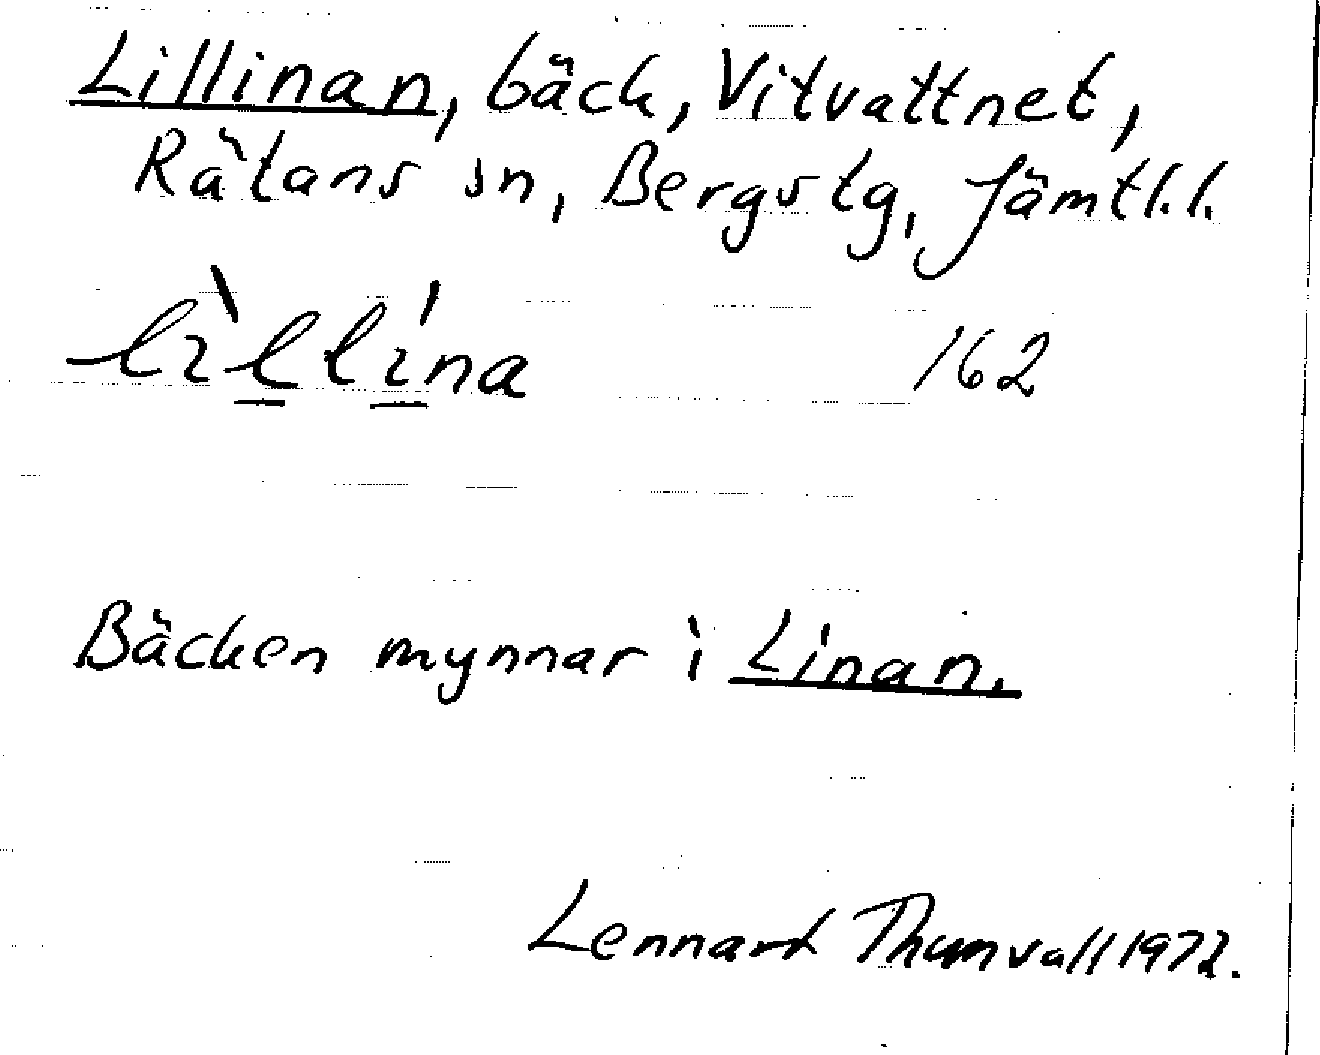 Lillinan, bäck, Vitvattnet,
Rätans sn, Bergs tg, Jämtl.l.
lìllína 162
Bäcken mynnar i Linan.
Lennart Thunvall 1972.